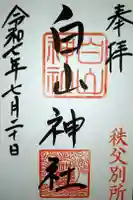 奉拝
秩父別所
白山神社
令和七年七月二十日